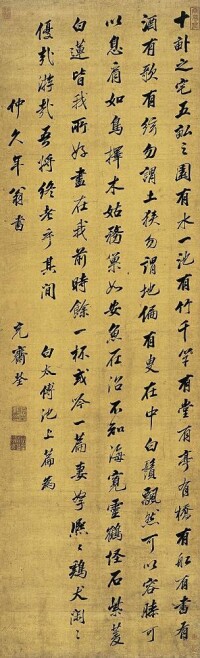 十畝之宅五畝〻園有水一池有竹千竿有堂有亭有橋有船有書有
酒有歌有絃勿謂土狹勿謂地偏有叟在中白鬚飄然可以容膝可
以息肩如鳥擇木姑務巢如安魚在沼不知海寬靈鶴怪石紫菱
白蓮皆我所好盡在我前時飲一杯或吟一篇妻孥熙〻雞犬閒〻
優哉游哉吾將終老乎其間 白太傅池上篇為
仲久年翁書 充齋荃